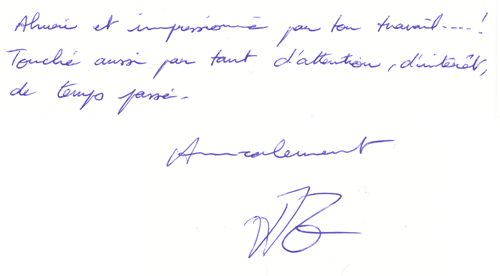 Ahuri et impressionné par ton travail....!
Touché aussi par tant d'attention, d'intérêt,
de temps passé.
Amicalement